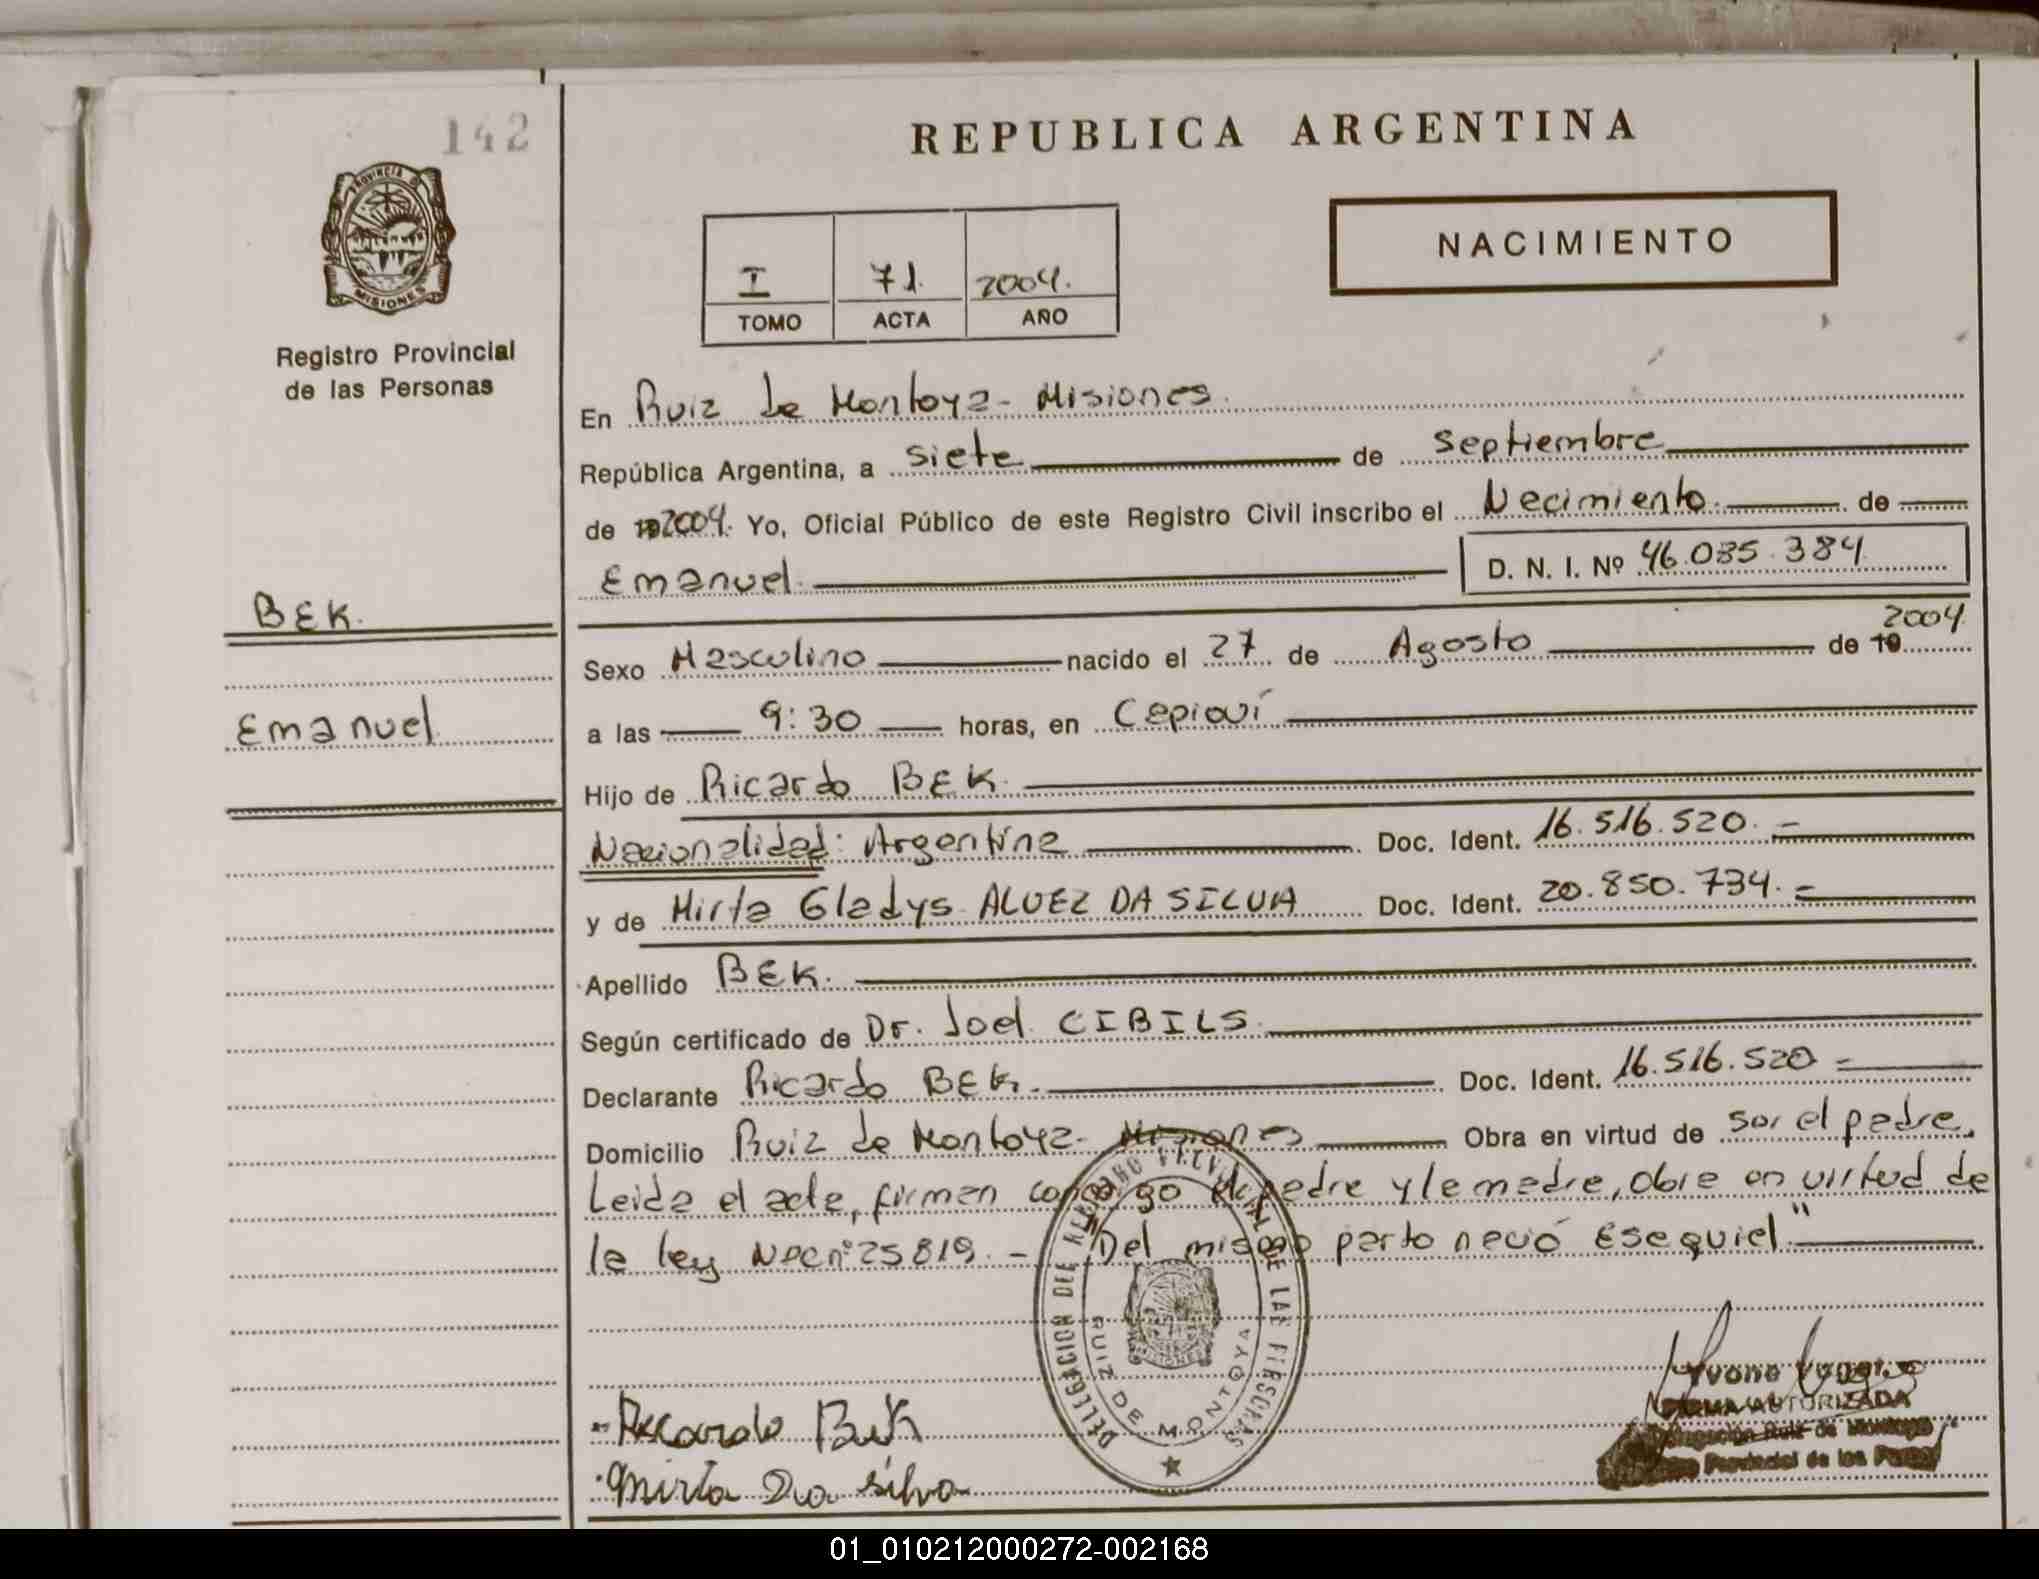 142
PROVINCIA D
MISIONES
Registro Provincial
de las Personas
REPUBLICA ARGENTINA
NACIMIENTO
I 71. 2004.
TOMO ACTA AÑO
En Ruiz de Montoya - Misiones.
República Argentina, a siete de septiembre
de 192004. Yo, Oficial Público de este Registro Civil inscribo el Nacimiento de
Emanuel. D. N. I. Nº 46.085.384
BEK.
Emanuel
Sexo Masculino nacido el 27 de Agosto de 19 2004
a las 9:30 horas, en Capioví
Hijo de Ricardo BEK.
Nacionalidad: Argentina Doc. Ident. 16.516.520. -
y de Mirta Gladys ALVEZ DA SILVA Doc. Ident. 20.850.734. -
Apellido BEK.
Según certificado de Dr. Joel CIBILS.
Declarante Ricardo BEK. Doc. Ident. 16.516.520 =
Domicilio Ruiz de Montoya - Misiones Obra en virtud de ser el padre.
Leida el acta, firman conmigo el padre y la madre, obra en virtud de
la ley Nacnº25819. - "Del mismo parto nació Esequiel"
DELEGACION DEL REGISTRO PROVINCIAL DE LAS PERSONAS
RUIZ DE MONTOYA
Ricardo Bek
Mirta Da Silva
Yvone
FIRMA AUTORIZADA
Delegación Ruiz de Montoya
Provincial de las Person
01_010212000272-002168